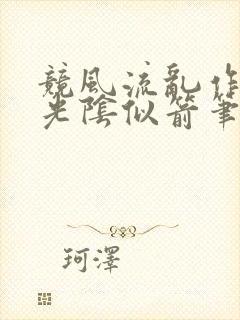 競風流亂作
光陰似箭筆
珂澤